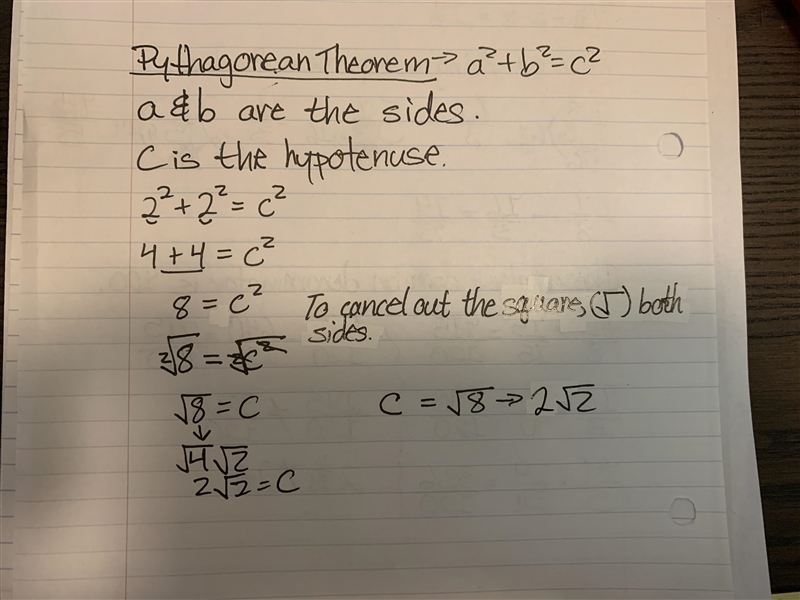 Pythagorean Theorem → a²+b²=c²
a & b are the sides.
C is the hypotenuse.
2² + 2² = c²
4 + 4 = c²
8 = c² To cancel out the square, (√) both
sides.
²√8 = ²√c²
√8 = C C = √8 → 2√2
↓
√4 √2
2√2 = C